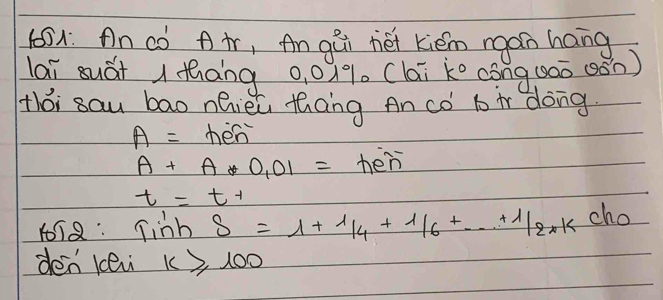 bài 1: An có A tr, An gửi tiết kiệm ngân hàng
lãi suất 1 tháng 0,01% (lãi ko cộng vào vốn)
thỏi sau bao nhiêu tháng An có b tr đồng.
A = tiền
A + A * 0,01 = tiền
t = t +
bài 2: Tính S = 1 + 1/4 + 1/6 + ... + 1/2*K cho
đến khi K ≥ 100